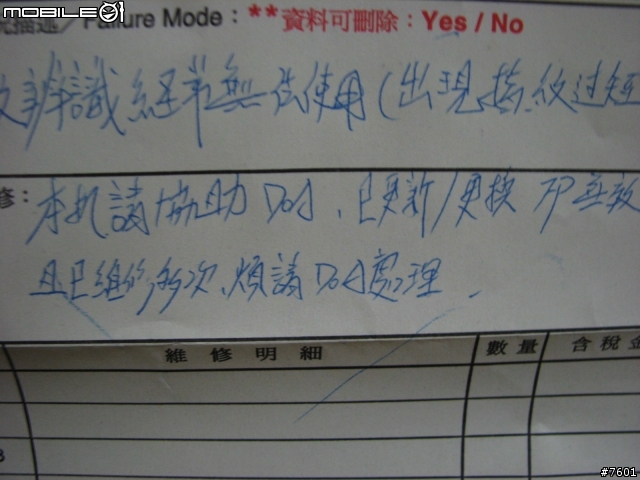 MOBILE01
況描述/Failure Mode：**資料可刪除：Yes / No
紋辨識經常無法使用(出現指紋过短
修：本机請協助DOA、已更新/更換 均無效
且已維修多次、煩請DOA處理.
維修明細 數量 含稅金
#7601